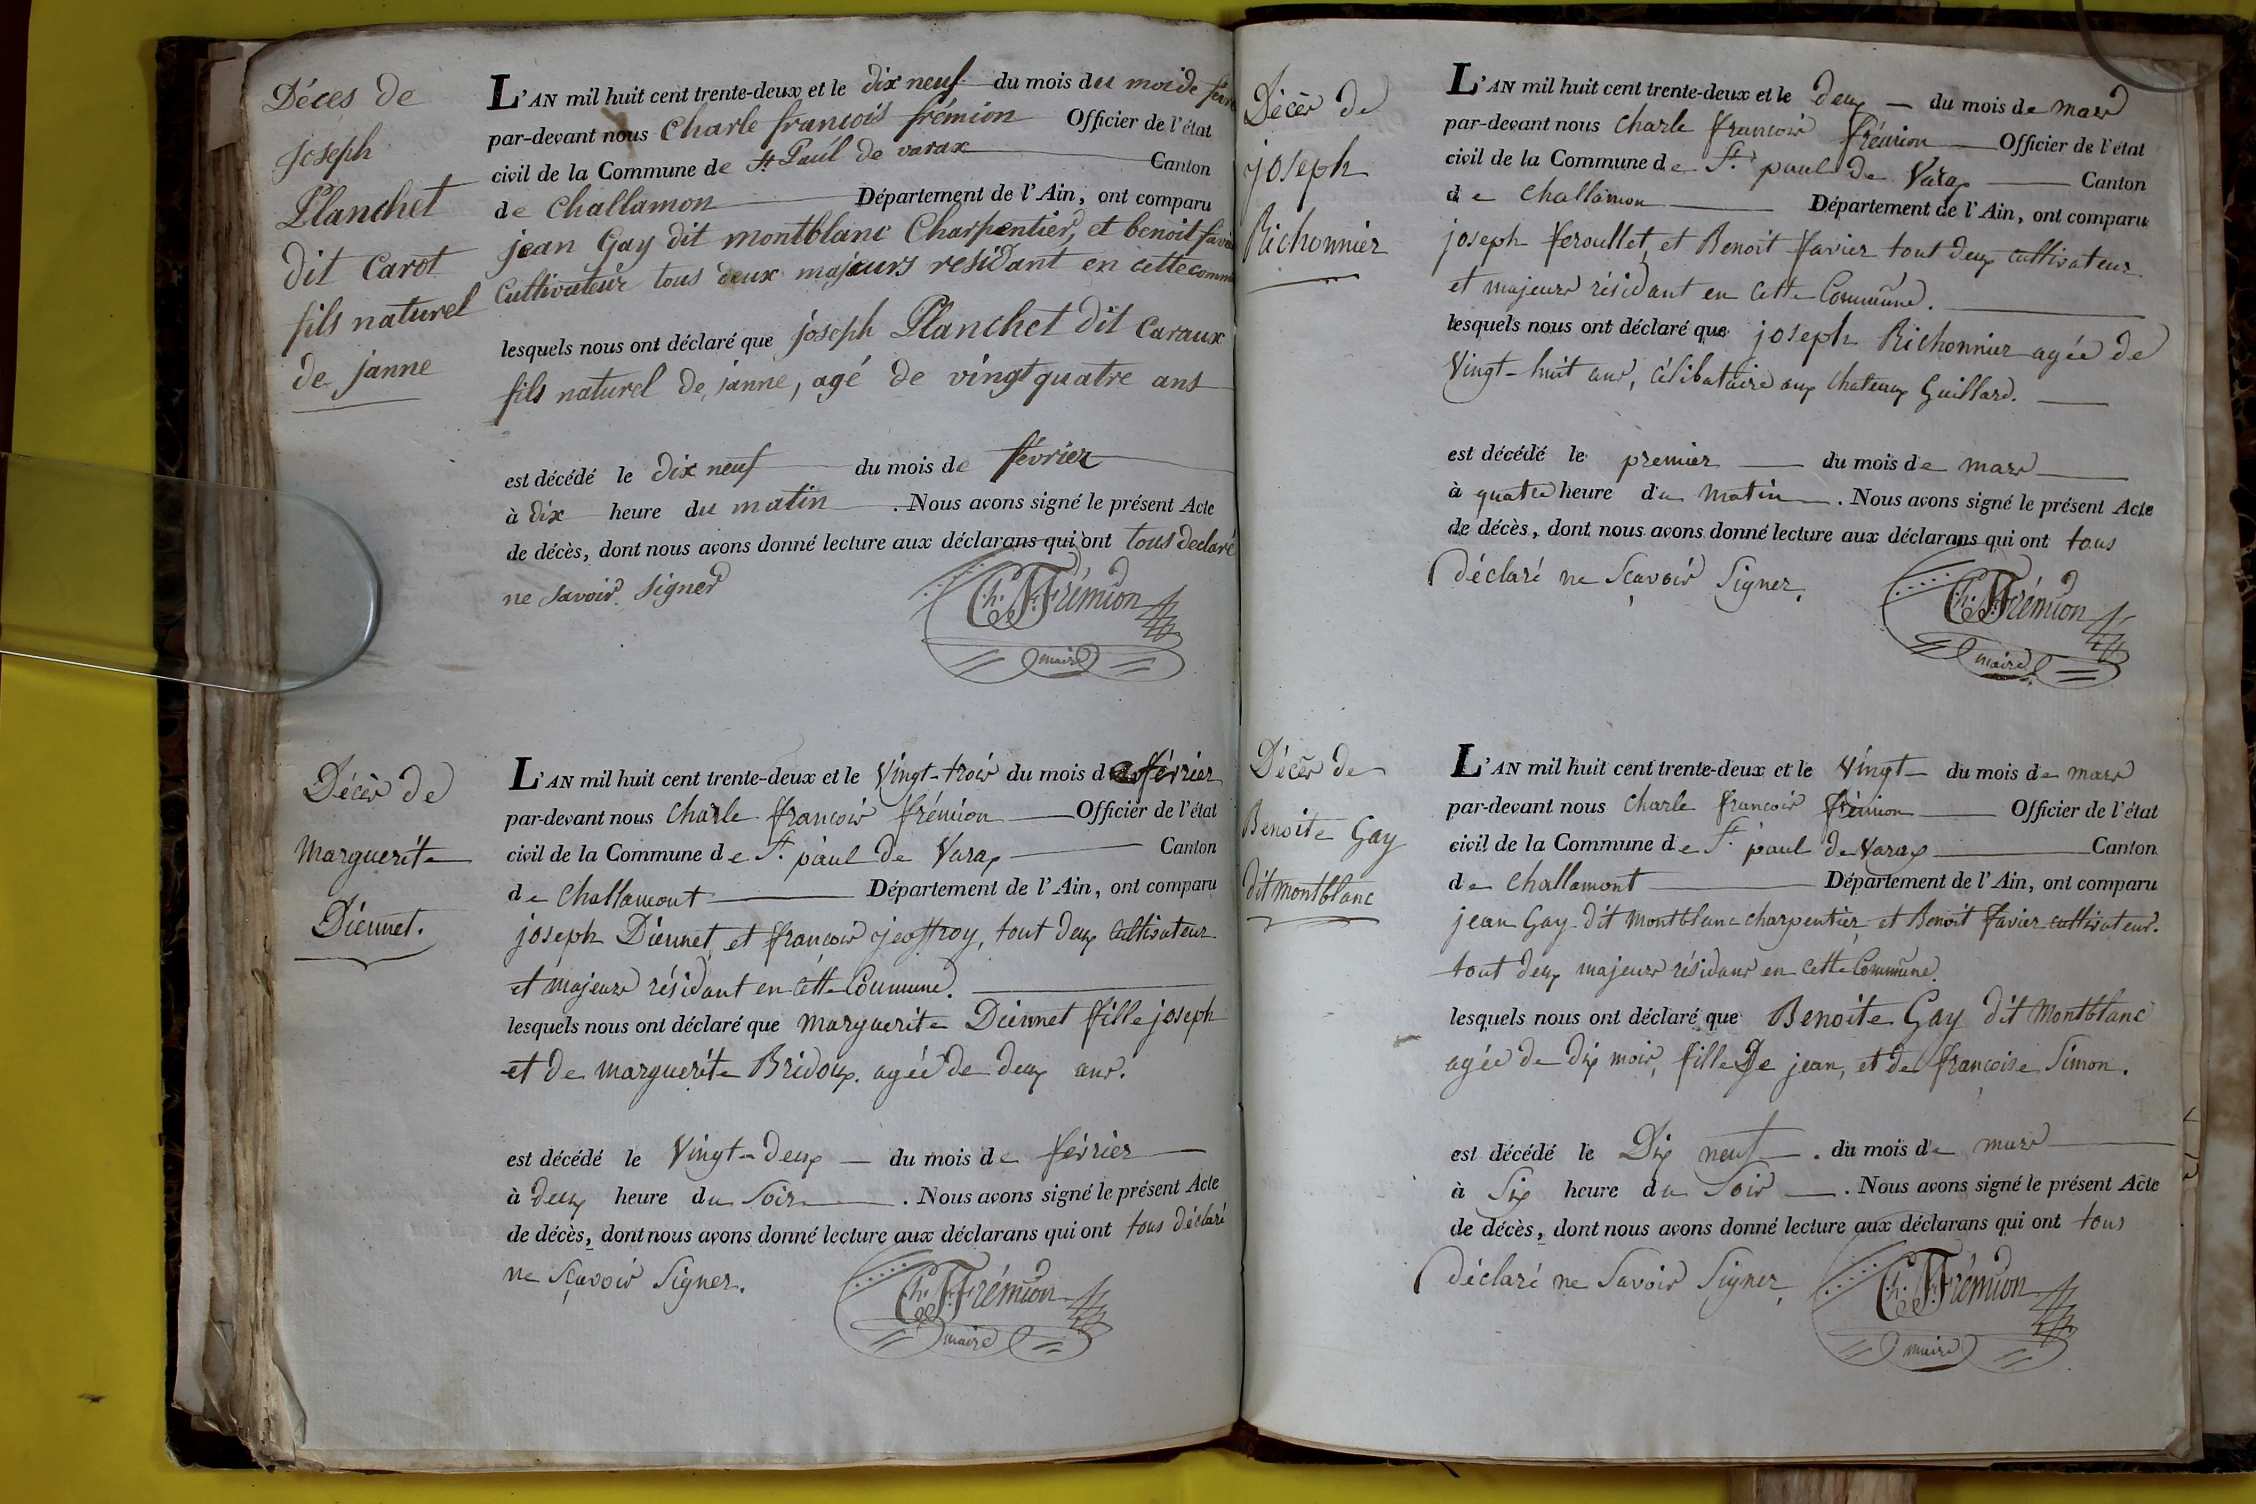 Décès de
joseph
Planchet
dit Carot
fils naturel
de janne
L'AN mil huit cent trente-deux et le dix neuf du mois du moi de
par-devant nous Charle francois frémion Officier de l'état
civil de la Commune de St Paul de varax Canton
de Challamon Département de l'Ain, ont comparu
jean Gay dit montblanc Charpentier, et benoit
Cultivateur tous deux majeurs residant en cette
lesquels nous ont déclaré que joseph Planchet dit Caraux
fils naturel de janne, agé de vingt quatre ans
est décédé le dix neuf du mois de février
à dix heure du matin . Nous avons signé le présent Acte
de décès, dont nous avons donné lecture aux déclarans qui ont tous declaré
ne savoir signer
Ch. F. Frémion
maire
Décès de
Marguerite
Diennet.
L'AN mil huit cent trente-deux et le Vingt-trois du mois de février
par-devant nous Charle francois frémion Officier de l'état
civil de la Commune de St. paul de Varax Canton
de Challamont Département de l'Ain, ont comparu
joseph Diennet, et francois jeoffroy, tout deux Cultivateur
et majeurs résidant en cette Commune.
lesquels nous ont déclaré que Marguerite Diennet fille joseph
et de marguerite Bridoux. agée de deux ans.
est décédé le Vingt-deux du mois de février
à deux heure du Soir . Nous avons signé le présent Acte
de décès, dont nous avons donné lecture aux déclarans qui ont tous déclaré
ne Sçavoir Signer.
Ch. F. Frémion
maire
Décès de
joseph
Richonnier
L'AN mil huit cent trente-deux et le deux du mois de mars
par-devant nous Charle francois frémion Officier de l'état
civil de la Commune de St. paul de Varax Canton
de Challamon Département de l'Ain, ont comparu
joseph feroullet, et Benoit favier tout deux cultivateur
et majeurs résidant en cette Commune.
lesquels nous ont déclaré que joseph Richonnier agée de
Vingt-huit ans, célibataire aux chateaux Guillard.
est décédé le premier du mois de mars
à quatre heure du Matin . Nous avons signé le présent Acte
de décès, dont nous avons donné lecture aux déclarans qui ont tous
déclaré ne Sçavoir Signer.
Ch. F. Frémion
maire
Décès de
Benoite Gay
dit Montblanc
L'AN mil huit cent trente-deux et le Vingt du mois de mars
par-devant nous Charle francois frémion Officier de l'état
civil de la Commune de St. paul de Varax Canton
de Challamont Département de l'Ain, ont comparu
jean Gay dit Montblanc charpentier, et Benoit favier cultivateur.
tout deux majeurs résidans en cette Commune.
lesquels nous ont déclaré que Benoite Gay dit Montblanc
agée de dix mois, fille De jean, et de françoise Simon.
est décédé le Dix neuf . du mois de mars
à Six heure du Soir . Nous avons signé le présent Acte
de décès, dont nous avons donné lecture aux déclarans qui ont tous
déclaré ne Savoir Signer
Ch. F. Frémion
maire